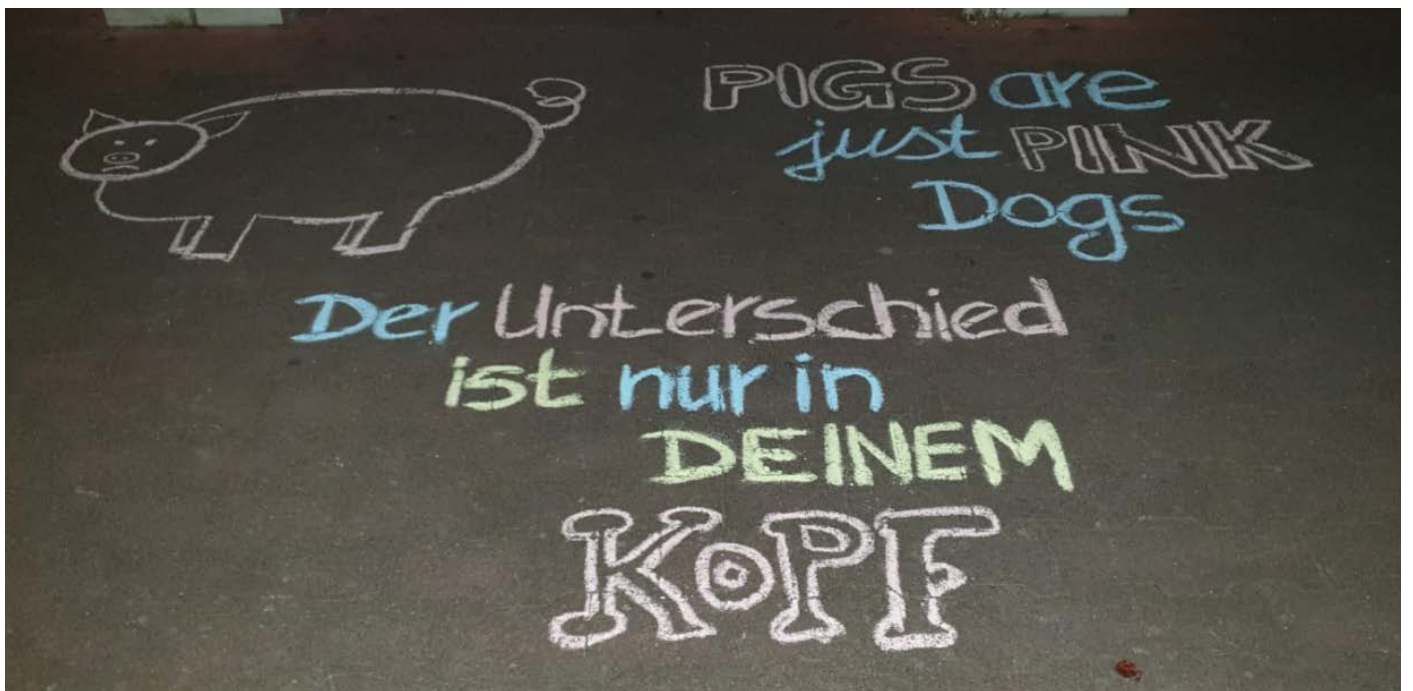 PIGS are
just PINK
Dogs
Der Unterschied
ist nur in
DEINEM
KoPF